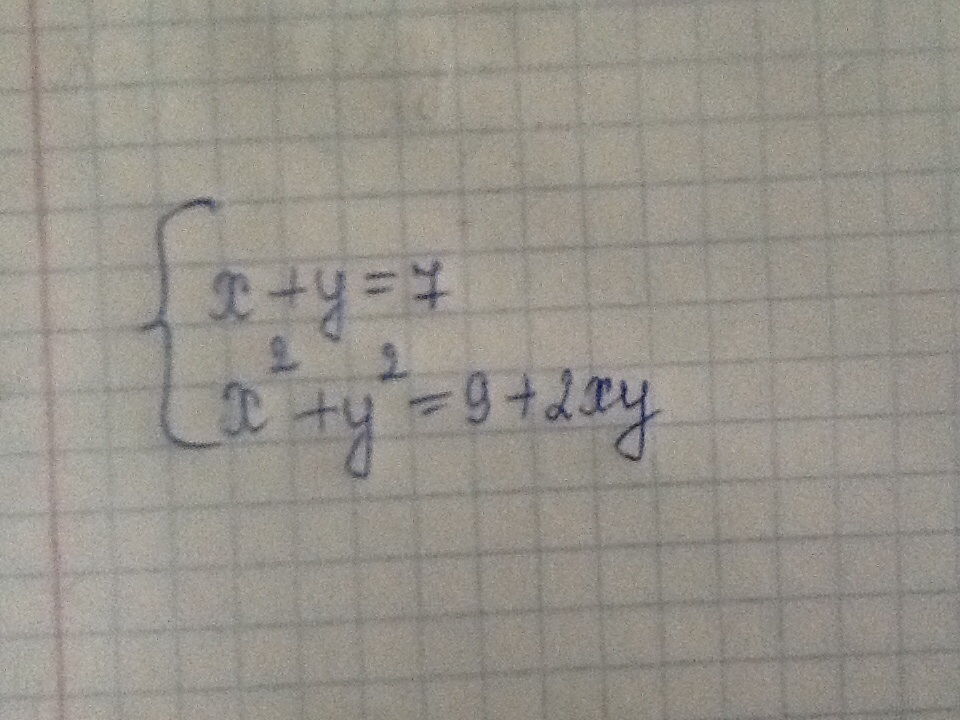 x+y=7
x²+y²=9+2xy